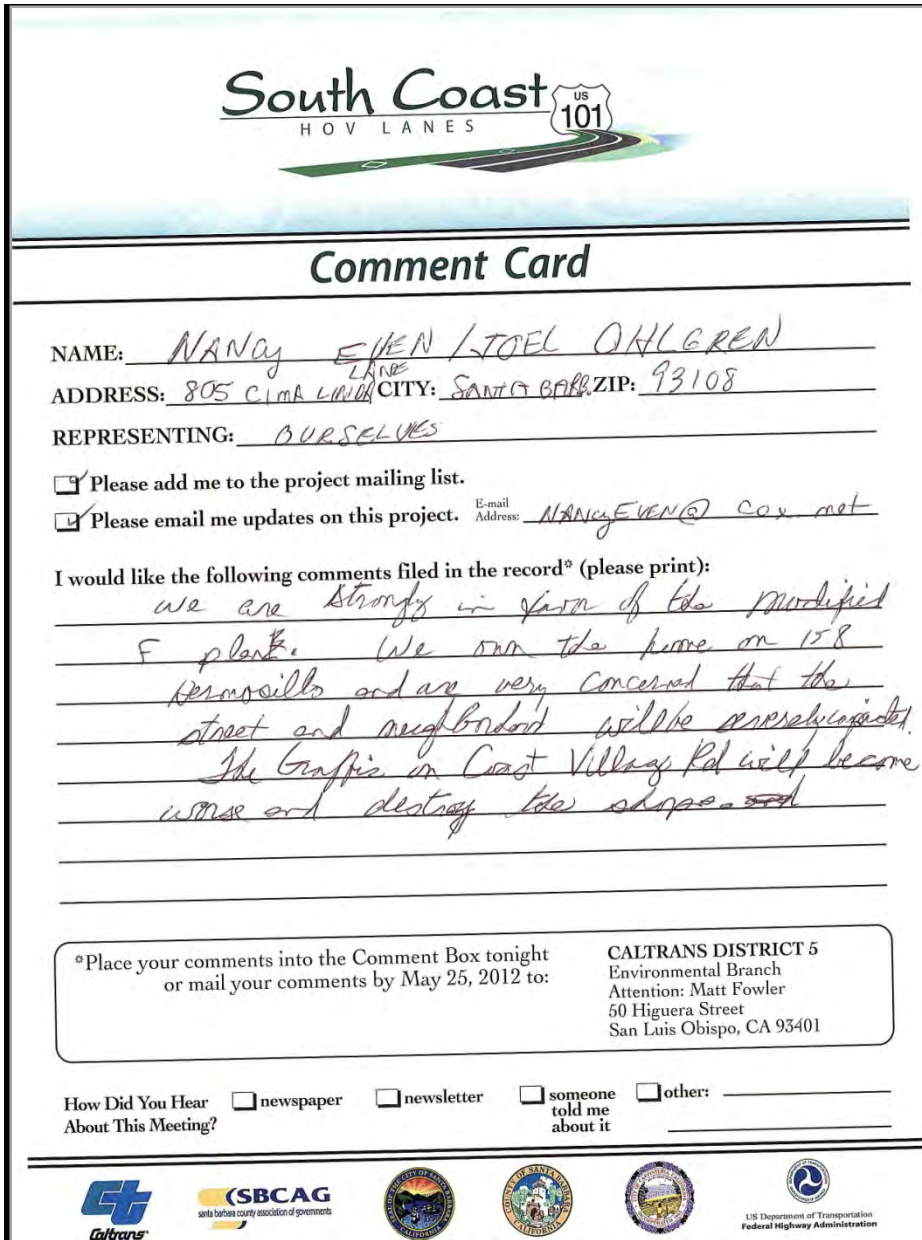 South Coast
HOV LANES
US
101
Comment Card
NAME: NANCY EVEN / JOEL OHLGREN
ADDRESS: 805 CIMA LINDA LANE CITY: SANTA BARB. ZIP: 93108
REPRESENTING: OURSELVES
Please add me to the project mailing list.
Please email me updates on this project. E-mail Address: NANCYEVEN@ cox.net
I would like the following comments filed in the record* (please print):
We are strongly in favor of the modified
F plan. We own the home on 158
Hermosillo and are very concerned that the
street and neighborhood will be severely impacted.
The traffic on Coast Village Rd will become
worse and destroy the shops.
*Place your comments into the Comment Box tonight
or mail your comments by May 25, 2012 to:
CALTRANS DISTRICT 5
Environmental Branch
Attention: Matt Fowler
50 Higuera Street
San Luis Obispo, CA 93401
How Did You Hear About This Meeting? newspaper newsletter someone told me about it other:
Caltrans
SBCAG
santa barbara county association of governments
COUNTY OF SANTA BARBARA
CALIFORNIA
US Department of Transportation
Federal Highway Administration